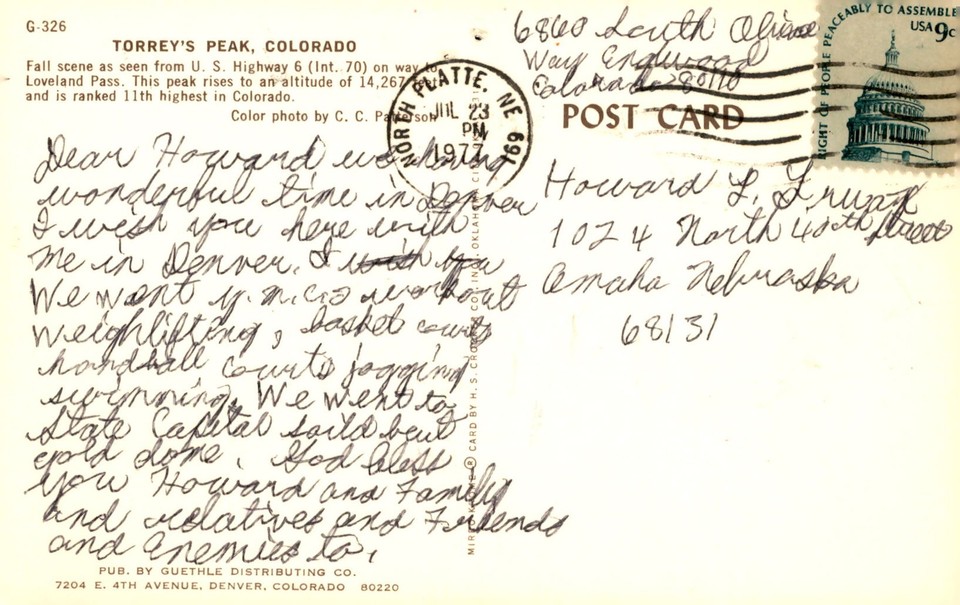 G-326
TORREY'S PEAK, COLORADO
Fall scene as seen from U. S. Highway 6 (Int. 70) on way to
Loveland Pass. This peak rises to an altitude of 14,267 feet
and is ranked 11th highest in Colorado.
Color photo by C. C. Patterson
6860 South Olive
Way Englwood
Colorado 80110
RIGHT OF PEOPLE PEACEABLY TO ASSEMBLE
USA 9c
NORTH PLATTE, NE 691
JUL 23
PM
1977
POST CARD
Dear Howard we having
wonderful time in Denver
I wish you here with
me in Denver. I wish you
We went y.m.c.a workout
weighlifting, basket courts
handball courts jogging
swimming. We went to
State Capital soild
gold dome. God bless
you Howard and Family
and relatives and Friends
and Enemies to.
Howard L.
1024 North 40th Street
Omaha Nebraska
68131
CARD BY H. S.
PUB. BY GUETHLE DISTRIBUTING CO.
7204 E. 4TH AVENUE, DENVER, COLORADO 80220